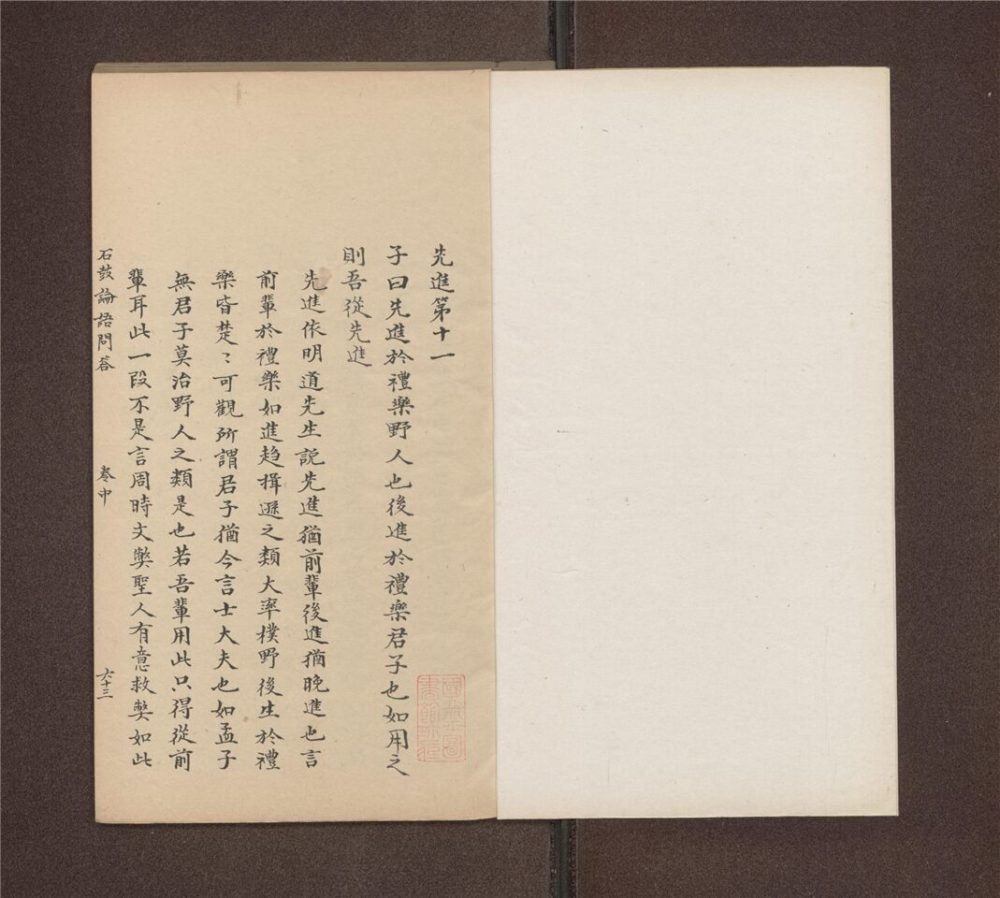 先進第十一
子曰先進於禮樂野人也後進於禮樂君子也如用之
則吾從先進
先進依明道先生說先進猶前輩後進猶晚進也言
前輩於禮樂如進趋揖遜之類大率樸野後生於禮
樂皆楚〻可觀所謂君子猶今言士大夫也如孟子
無君子莫治野人之類是也若吾輩用此只得從前
輩耳此一段不是言周時文獘聖人有意救獘如此
石鼓論語問答 卷中 六十三